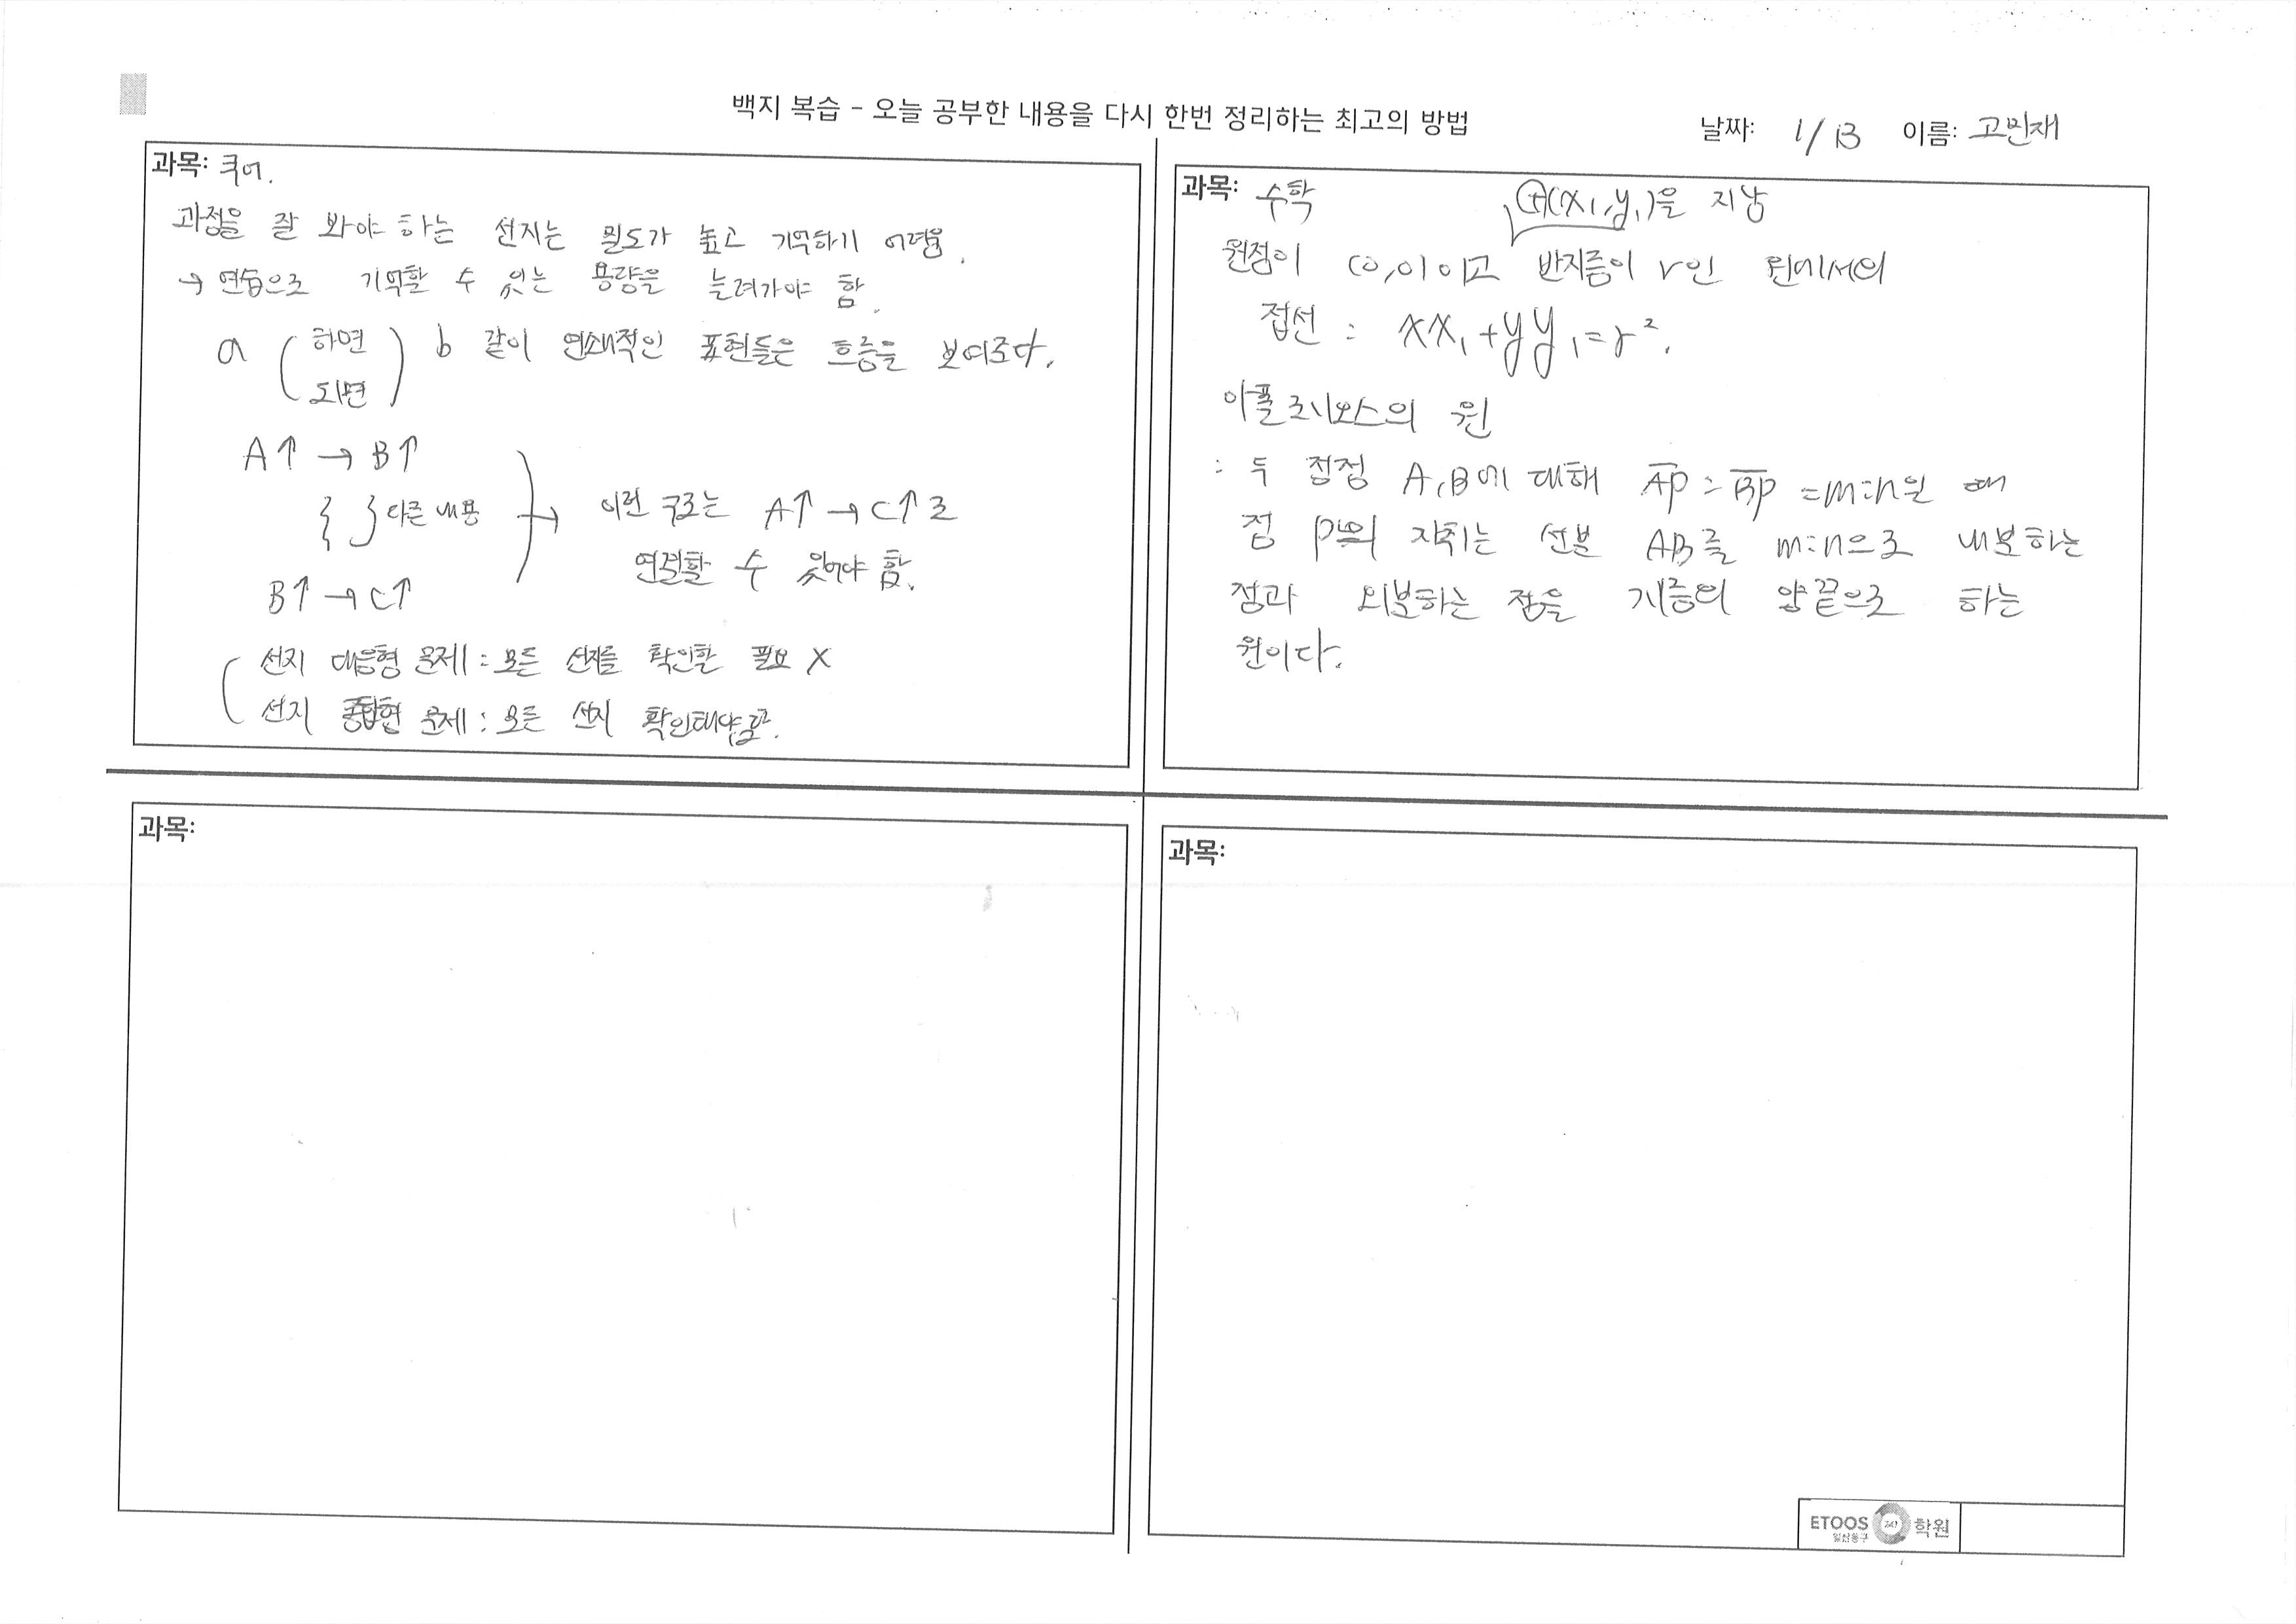 백지 복습 - 오늘 공부한 내용을 다시 한번 정리하는 최고의 방법
날짜: 1/13 이름: 고민재
과목: 국어.
과정을 잘 봐야 하는 선지는 밀도가 높고 기억하기 어려움.
→ 연습으로 기억할 수 있는 용량을 늘려가야 함.
a ( 하면 되면 ) b 같이 연쇄적인 표현들은 흐름을 보여준다.
A↑ → B↑
{ } 다른 내용 → 이런 구조는 A↑ → C↑로
연결할 수 있어야 함.
B↑ → C↑
선지 대응형 문제 : 모든 선지를 확인할 필요 X
선지 종합형 문제 : 모든 선지 확인해야
과목: 수학
(x₁, y₁)을 지남
원점이 (0,0)이고 반지름이 r인 원에서의
접선 : xx₁+yy₁=r².
아폴로니오스의 원
: 두 정점 A,B에 대해 AP : BP = m:n일 때
점 P의 자취는 선분 AB를 m:n으로 내분하는
점과 외분하는 점을 지름의 양끝으로 하는
원이다.
과목:
과목:
ETOOS 247 학원
일산동구